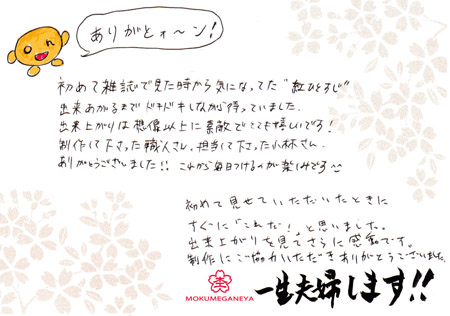 ありがとォ〜ン！
初めて雑誌で見た時から気になってた"紅ひとすじ"
出来あがるまでドキドキしながら待っていました。
出来上がりは想像以上に素敵でとても嬉しいです！
制作して下さった職人さん、担当して下さった小林さん、
ありがとうございました！！ これから毎日つけるのが楽しみです
初めて見せていただいたときに
すぐに「これだ！」と思いました。
出来上がりを見てさらに感動です。
制作にご協力いただきありがとうございました。
MOKUMEGANEYA
一生夫婦します!!